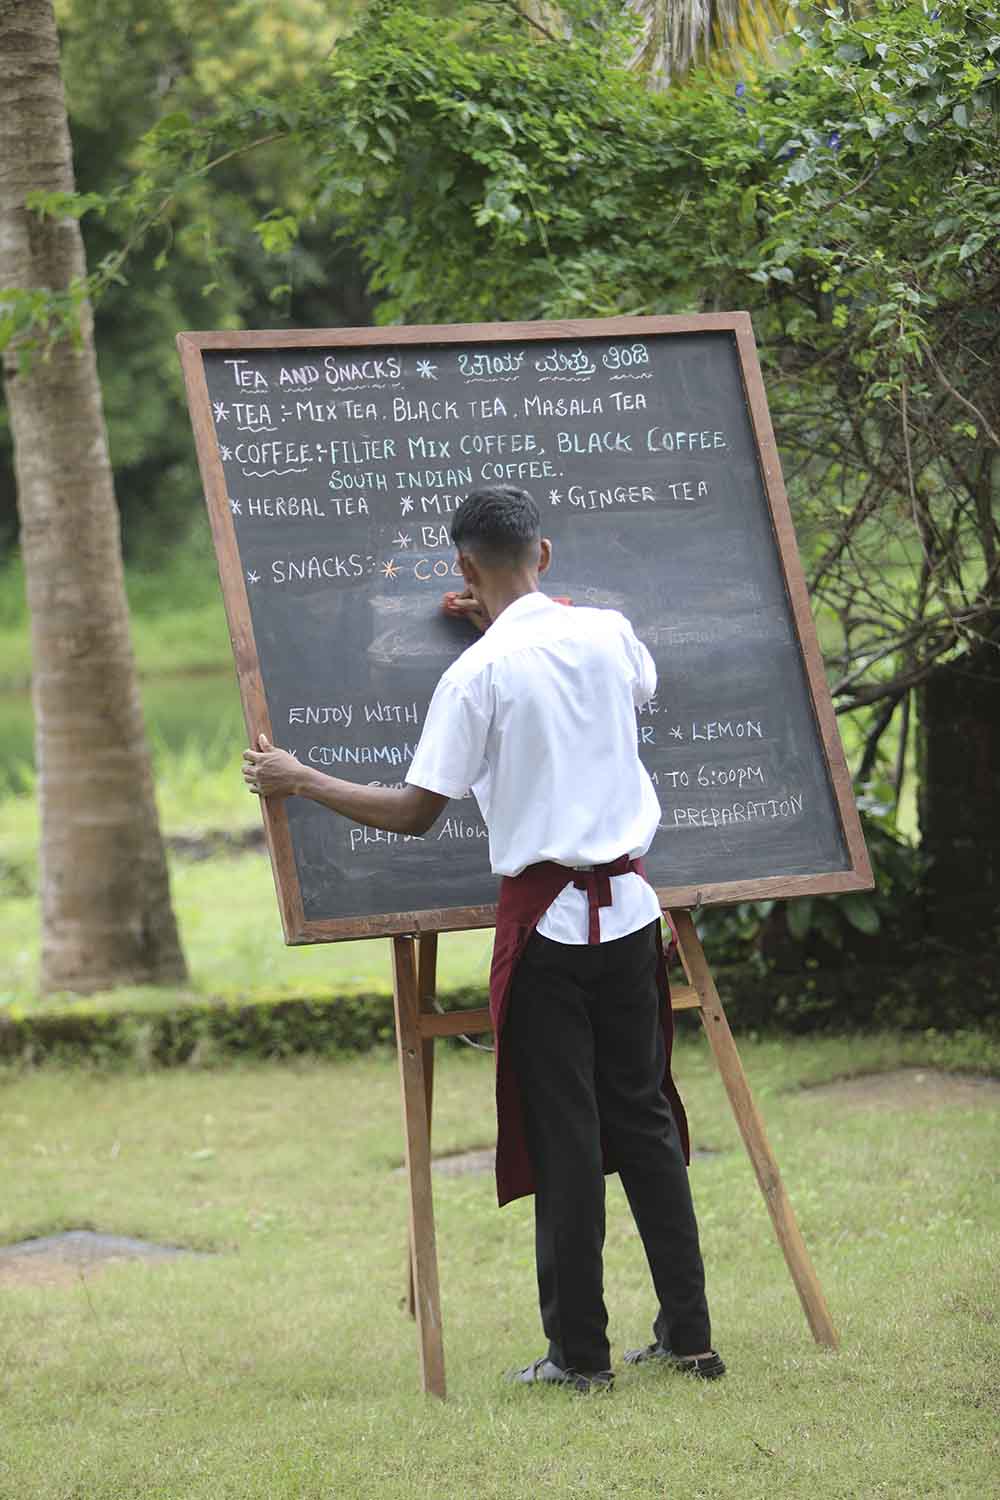 TEA AND SNACKS * ಚಾಯ್ ಮತ್ತು ತಿಂಡಿ
* TEA :- MIX TEA. BLACK TEA. MASALA TEA
* COFFEE :- FILTER MIX COFFEE, BLACK COFFEE
SOUTH INDIAN COFFEE.
* HERBAL TEA * * GINGER TEA
*
* SNACKS :- *
ENJOY WITH
* CINNAMAN * LEMON
TO 6:00PM
PLEASE Allow PREPARATION